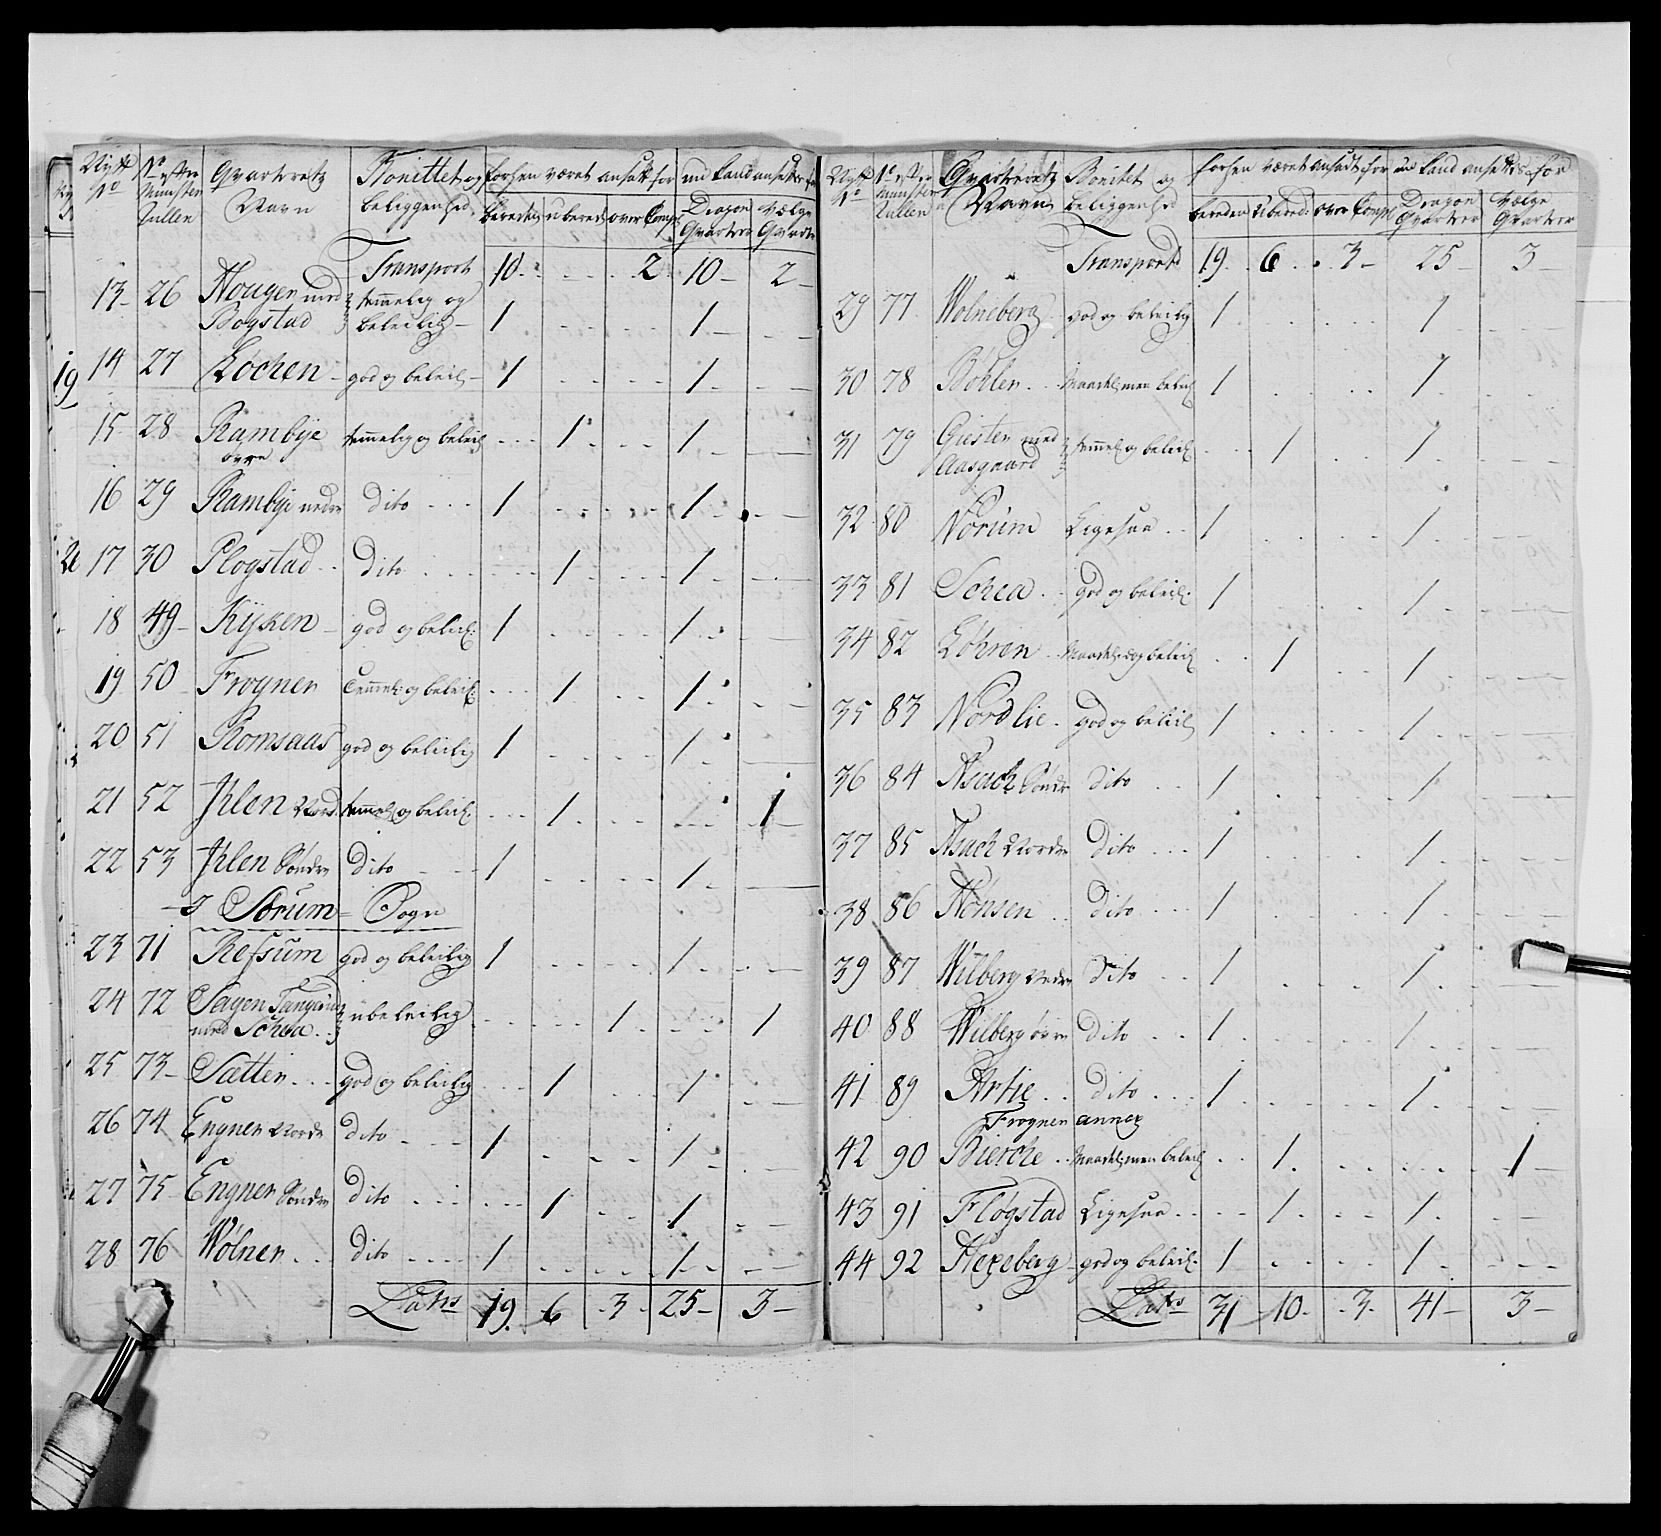 Nytt No | No efter Munster Rullen | Qvarteretz Navn | Bonittet og beliggenhed | forhen været ansatt for | nu kand ansettes for
bereden | ubered: | over Compl: | Dragon Qvarteer | Vælge Qvarte
Transport 10 2 10 2
13 26 Hougen med Bogstad temmelig og beleilig 1 1
19
14 27 Løchen god og beleil: 1 1
15 28 Rambye øvre temmelig og beleil: 1 1
16 29 Rambye nedre dito 1 1
17 30 Plogstad dito 1 1
18 49 Kyken god og beleil: 1 1
19 50 Frogner Temmel: og beleil: 1 1
20 51 Romsaas god og beleilig 1 1
21 52 Jhlen Nord: temmel: og beleil: 1 1
22 53 Jhlen Søndre dito 1 1
I Sørum Sogn
23 71 Refsum god og beleilig 1 1
24 72 Sagen Tangerud med Schea ubeleilig 1 1
25 73 Sætten god og beleilig 1 1
26 74 Engner Nordre dito 1 1
27 75 Engner Søndre dito 1 1
28 76 Wølner dito 1 1
Lats 19 6 3 25 3
Nytt No | No efter Munster Rullen | Qvarteretz Navn | Bonitet og beliggenhed | forhen været ansadt for | nu kand ansettes for
bereden | Ubered: | over Compl | Dragon Qvarteer | Vælge Qvarteer
Transport 19 6 3 25 3
29 77 Wolneberg god og beleilig 1 1
30 78 Bøhler Maadel: men beleil: 1 1
31 79 Giesten med Aasgaard temmel: og beleil: 1 1
32 80 Norum Ligesaa 1 1
33 81 Schea god og beleil: 1 1
34 82 Løhren Maadel: og beleil: 1 1
35 83 Nordlie god og beleil: 1 1
36 84 Asach Søndre dito 1 1
37 85 Asach Nordre dito 1 1
38 86 Hønsen dito 1 1
39 87 Wilberg Nedre dito 1 1
40 88 Wilberg øvre dito 1 1
41 89 Artie dito 1 1
Frogner annex
42 90 Bierche Maadel: men beleil: 1 1
43 91 Fløgstad Ligesaa 1 1
44 92 Hexeberg god og beleil: 1 1
Lats 31 10 3 41 3